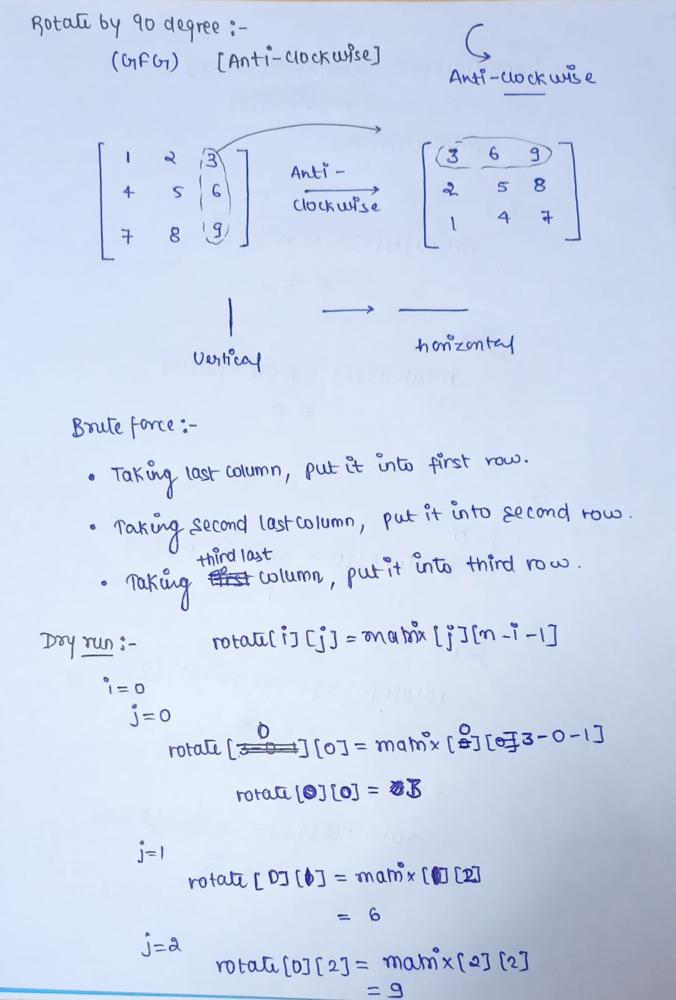 Rotate by 90 degree :-
(GFG) [Anti-clockwise]
Anti-clockwise
1 2 3
4 5 6
7 8 9
Anti-
clockwise
3 6 9
2 5 8
1 4 7
vertical
horizontal
Brute force :-
• Taking last column, put it into first row.
• Taking second last column, put it into second row.
• Taking third last column, put it into third row.
Dry run :- rotate[i][j] = matrix[j][n-i-1]
i=0
j=0
rotate[0][0] = matrix[0][3-0-1]
rotate[0][0] = 3
j=1
rotate[0][1] = matrix[1][2]
= 6
j=2
rotate[0][2] = matrix[2][2]
= 9